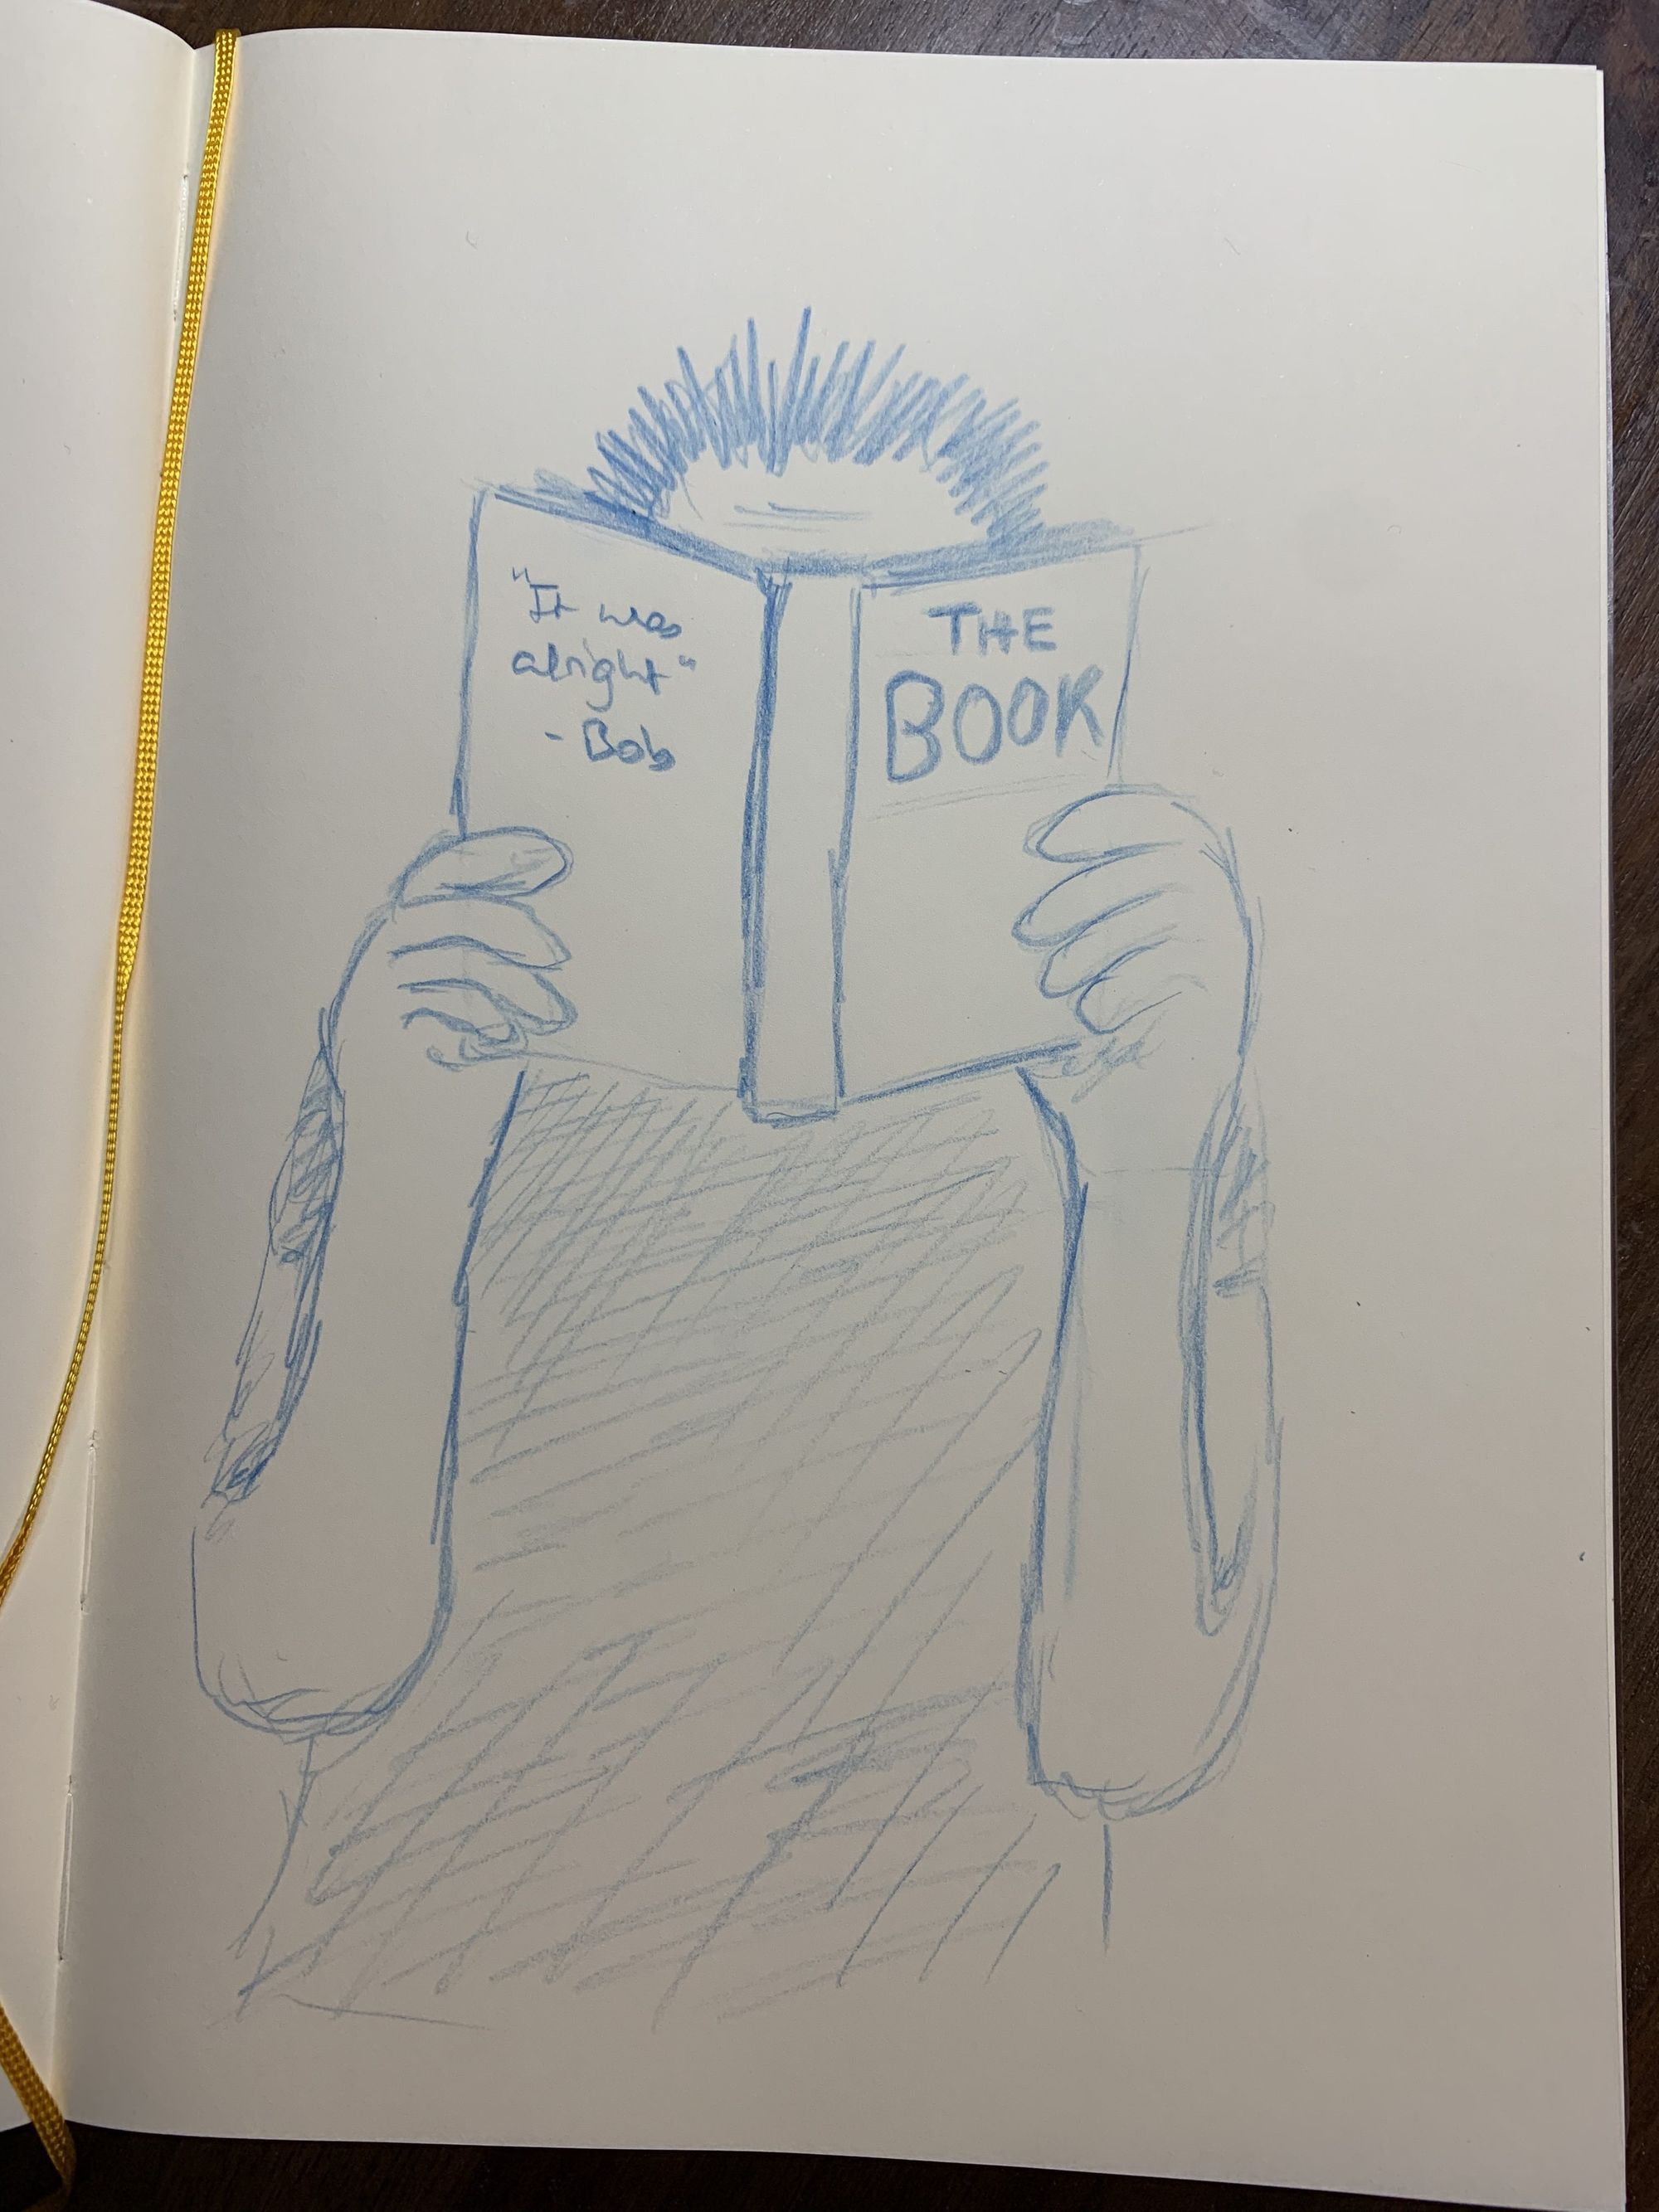 "It was
alright"
- Bob
THE
BOOK